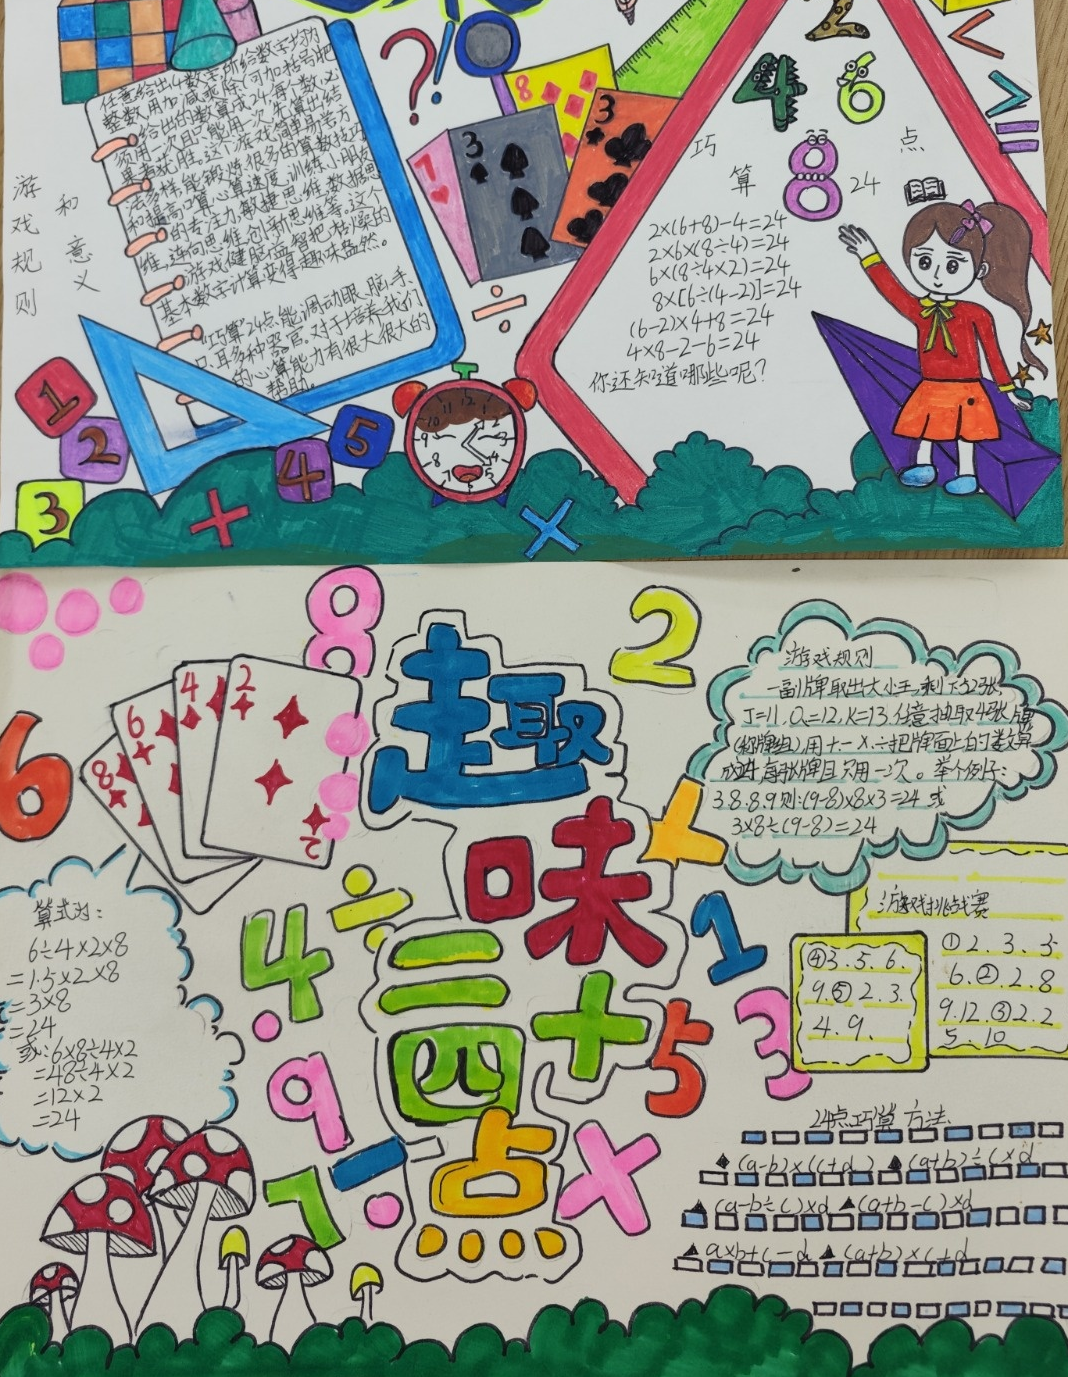 游戏规则
和意义
任意给出4数字,所给数字均为
整数,用加、减、乘、除(可加括号)把
给出的数算成24,每个数必
须用一次且只能用一次,先算出结
果者获胜。这个游戏简单易学,方
法多样,能锻炼很多的算数技巧
和提高口算心算速度,训练小朋友
的专注力、敏捷思维、数据思
维、逆向思维、创新思维等。这个
游戏健脑益智把枯燥的
基本数字计算变得趣味盎然。
"巧算"24点,能调动眼、脑、手、
口、耳多种器官,对于培养我们
的心算能力有很大的
帮助。
巧算24点
2×(6+8)-4=24
2×6×(8÷4)=24
6×(8÷4×2)=24
8×[6÷(4-2)]=24
(6-2)×4+8=24
4×8-2-6=24
你还知道哪些呢?
8
7
3
3
2
4
6
8
1
2
3
4
5
8
2
6
8
6
4
2
趣味二十四点
游戏规则
一副牌取出大小王,剩下52张,
J=11,Q=12,K=13,任意抽取4张牌
(称牌组)用+-×÷把牌面上的数算
成24.每张牌且只用一次。举个例子:
3.8.8.9则:(9-8)×8×3=24 或
3×8÷(9-8)=24
算式为:
6÷4×2×8
=1.5×2×8
=3×8
=24
或:6×8÷4×2
=48÷4×2
=12×2
=24
4
1
3
5
9
7
游戏挑战赛
①2、3、3、
6.②.2.8
9.12.③2.2
5、10
④3、5、6、
9.⑤2、3、
4、9、
24点巧算方法
(a-b)×(c+d) (a+b)÷c×d
(a-b÷c)×d (a+b-c)×d
a×b+c-d (a+b)×c+d